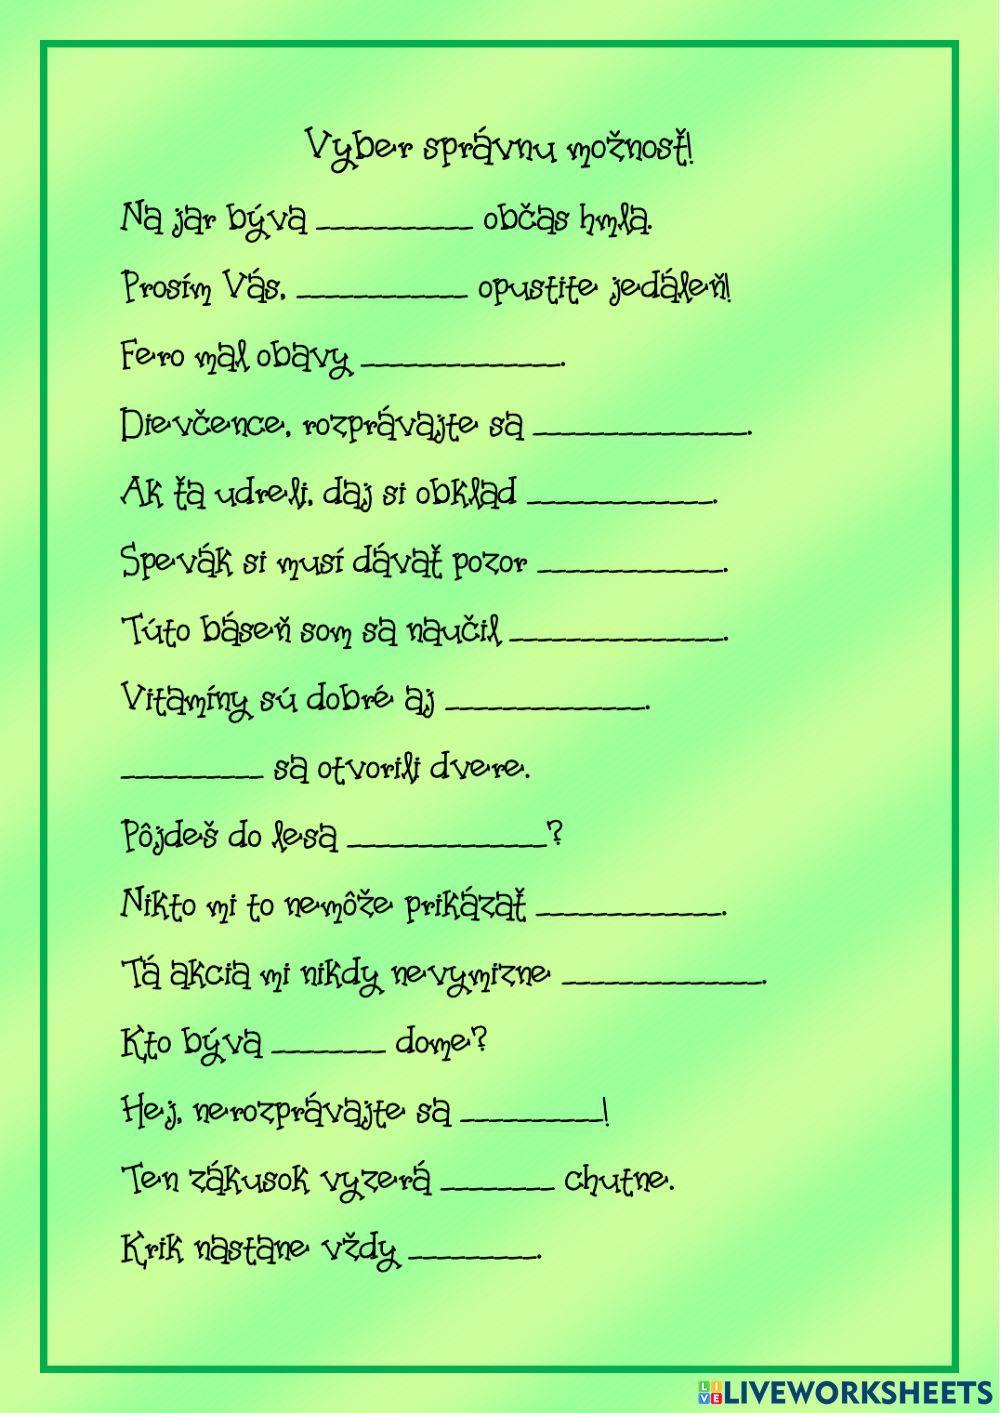 Vyber správnu možnosť!
Na jar býva __________ občas hmla.
Prosím Vás, ____________ opustite jedáleň!
Fero mal obavy ______________.
Dievčence, rozprávajte sa _______________.
Ak ťa udreli, daj si obklad _____________.
Spevák si musí dávať pozor _____________.
Túto báseň som sa naučil _______________.
Vitamíny sú dobré aj ______________.
__________ sa otvorili dvere.
Pôjdeš do lesa ______________?
Nikto mi to nemôže prikázať _____________.
Tá akcia mi nikdy nevymizne ______________.
Kto býva ________ dome?
Hej, nerozprávajte sa __________!
Ten zákusok vyzerá ________ chutne.
Krik nastane vždy _________.
LIVEWORKSHEETS